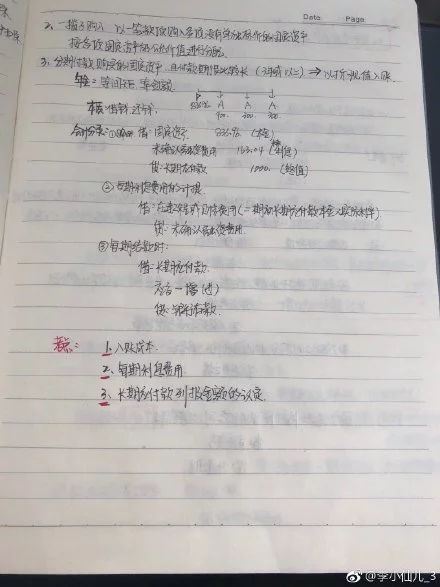 Date Page
2、一揽子购入 以一笔款项购入多项没有单独标价的固定资产
按各项固定资产公允价值进行分配
3、分期付款购买的固定资产,且付款期限比较长 ⇒ 以折现值入账
年金=等间距、等金额
P A A A
本质:借钱、还钱
会计分录:① 借:固定资产
未确认融资费用 163.04
贷:长期应付款 1000
② 每期利息费用的计提
借:在建工程或财务费用
贷:未确认融资费用
③ 每期付款时:
借:长期应付款
贷:银行存款
1、入账成本
2、每期利息费用
3、长期应付款列报金额的认定
@李小仙儿_3